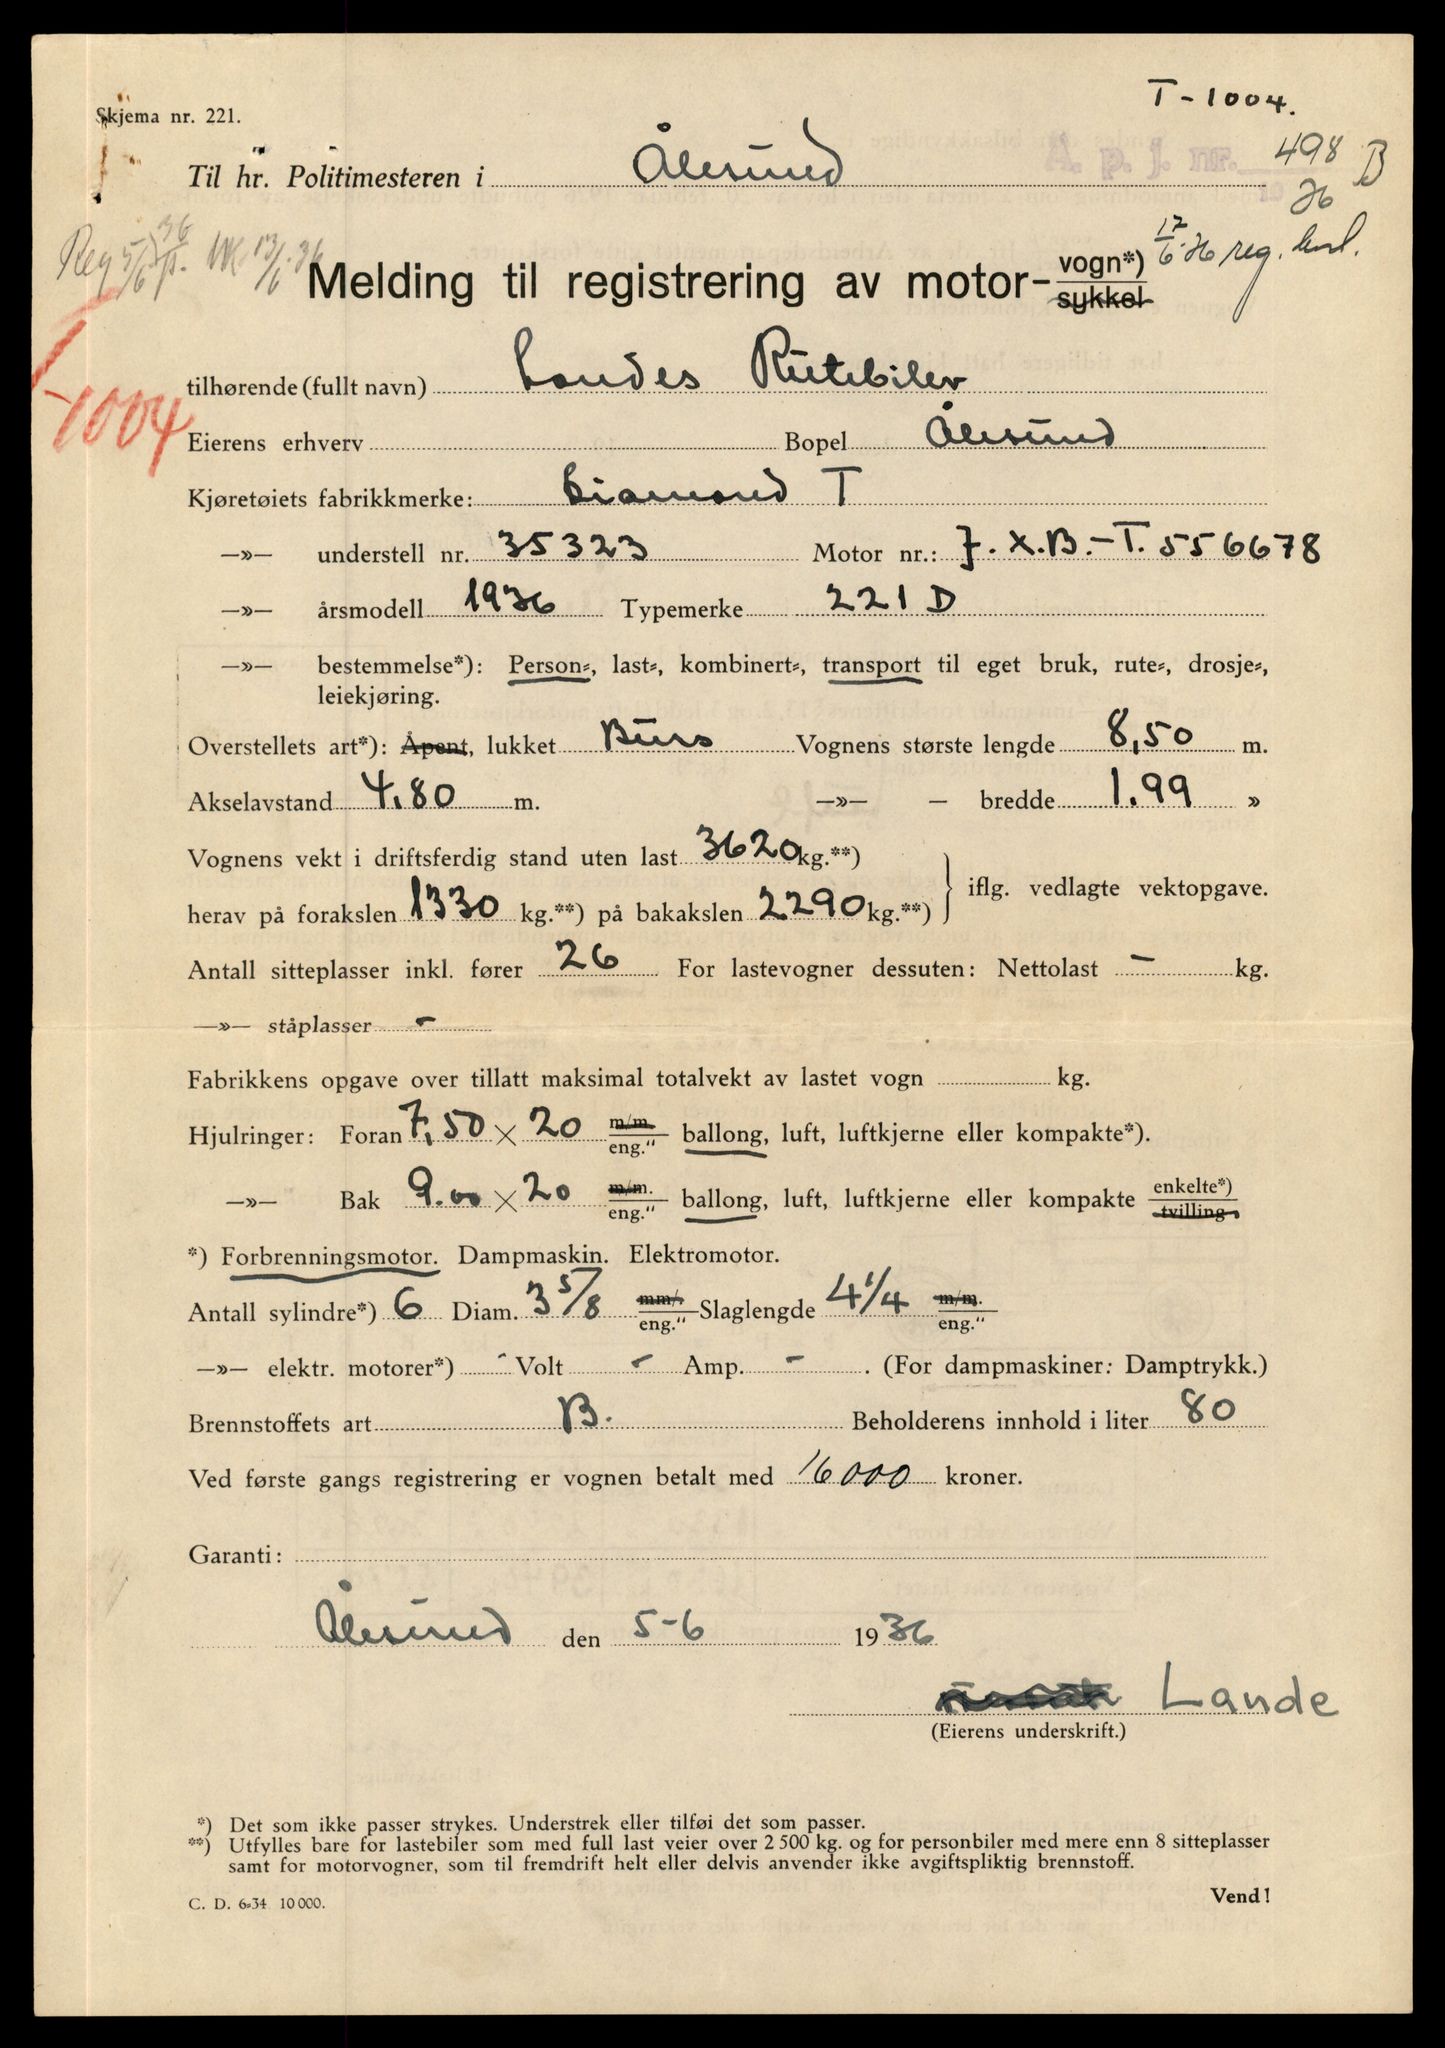 T-1004.
Skjema nr. 221.
Til hr. Politimesteren i Ålesund
A. p. J. nr. 498 B
36
Reg 5/6 36 13/6 36
17/6-36 reg.
Melding til registrering av motor- vogn*)
sykkel
tilhørende (fullt navn) Landes Rutebiler
T-1004
Eierens erhverv Bopel Ålesund
Kjøretøiets fabrikkmerke: Diamond T
—»— understell nr. 35323 Motor nr.: J.X.B.-T.556678
—»— årsmodell 1936 Typemerke 221 D
—»— bestemmelse*): Person-, last-, kombinert-, transport til eget bruk, rute-, drosje-,
leiekjøring.
Overstellets art*): Åpent, lukket Buss Vognens største lengde 8,50 m.
Akselavstand 4.80 m. —»— — bredde 1.99 »
Vognens vekt i driftsferdig stand uten last 3620 kg.**)
herav på forakslen 1330 kg.**) på bakakslen 2290 kg.**) } iflg. vedlagte vektopgave.
Antall sitteplasser inkl. fører 26 For lastevogner dessuten: Nettolast — kg.
—»— ståplasser -
Fabrikkens opgave over tillatt maksimal totalvekt av lastet vogn kg.
Hjulringer: Foran 7,50 × 20 m/m. eng." ballong, luft, luftkjerne eller kompakte*).
—»— Bak 9.00 × 20 m/m. eng." ballong, luft, luftkjerne eller kompakte enkelte*) tvilling.
*) Forbrenningsmotor. Dampmaskin. Elektromotor.
Antall sylindre*) 6 Diam. 3 5/8 mm/. eng." Slaglengde 4 1/4 m/m. eng."
—»— elektr. motorer*) - Volt - Amp. - . (For dampmaskiner: Damptrykk.)
Brennstoffets art B. Beholderens innhold i liter 80
Ved første gangs registrering er vognen betalt med 16000 kroner.
Garanti:
Ålesund den 5-6 1936
Lande
(Eierens underskrift.)
*) Det som ikke passer strykes. Understrek eller tilføi det som passer.
**) Utfylles bare for lastebiler som med full last veier over 2 500 kg. og for personbiler med mere enn 8 sitteplasser
samt for motorvogner, som til fremdrift helt eller delvis anvender ikke avgiftspliktig brennstoff.
C. D. 6-34 10 000.
Vend!